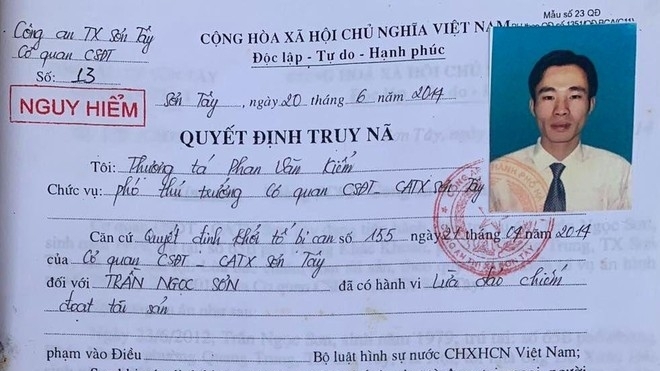 Mẫu số 23 QĐ
Công an TX Sơn Tây
CỘNG HÒA XÃ HỘI CHỦ NGHĨA VIỆT NAM
Cơ quan CSĐT
Độc lập - Tự do - Hạnh phúc
Số: 13
NGUY HIỂM
Sơn Tây, ngày 20 tháng 6 năm 2014
QUYẾT ĐỊNH TRUY NÃ
Tôi: Thượng tá Phan Văn Kiểm
Chức vụ: phó thủ trưởng Cơ quan CSĐT - CATX Sơn Tây
Căn cứ Quyết định khởi tố bị can số 155 ngày 21 tháng 04 năm 2014
của Cơ quan CSĐT - CATX Sơn Tây
đối với TRẦN NGỌC SƠN đã có hành vi Lừa đảo chiếm
đoạt tài sản
phạm vào Điều Bộ luật hình sự nước CHXHCN Việt Nam;